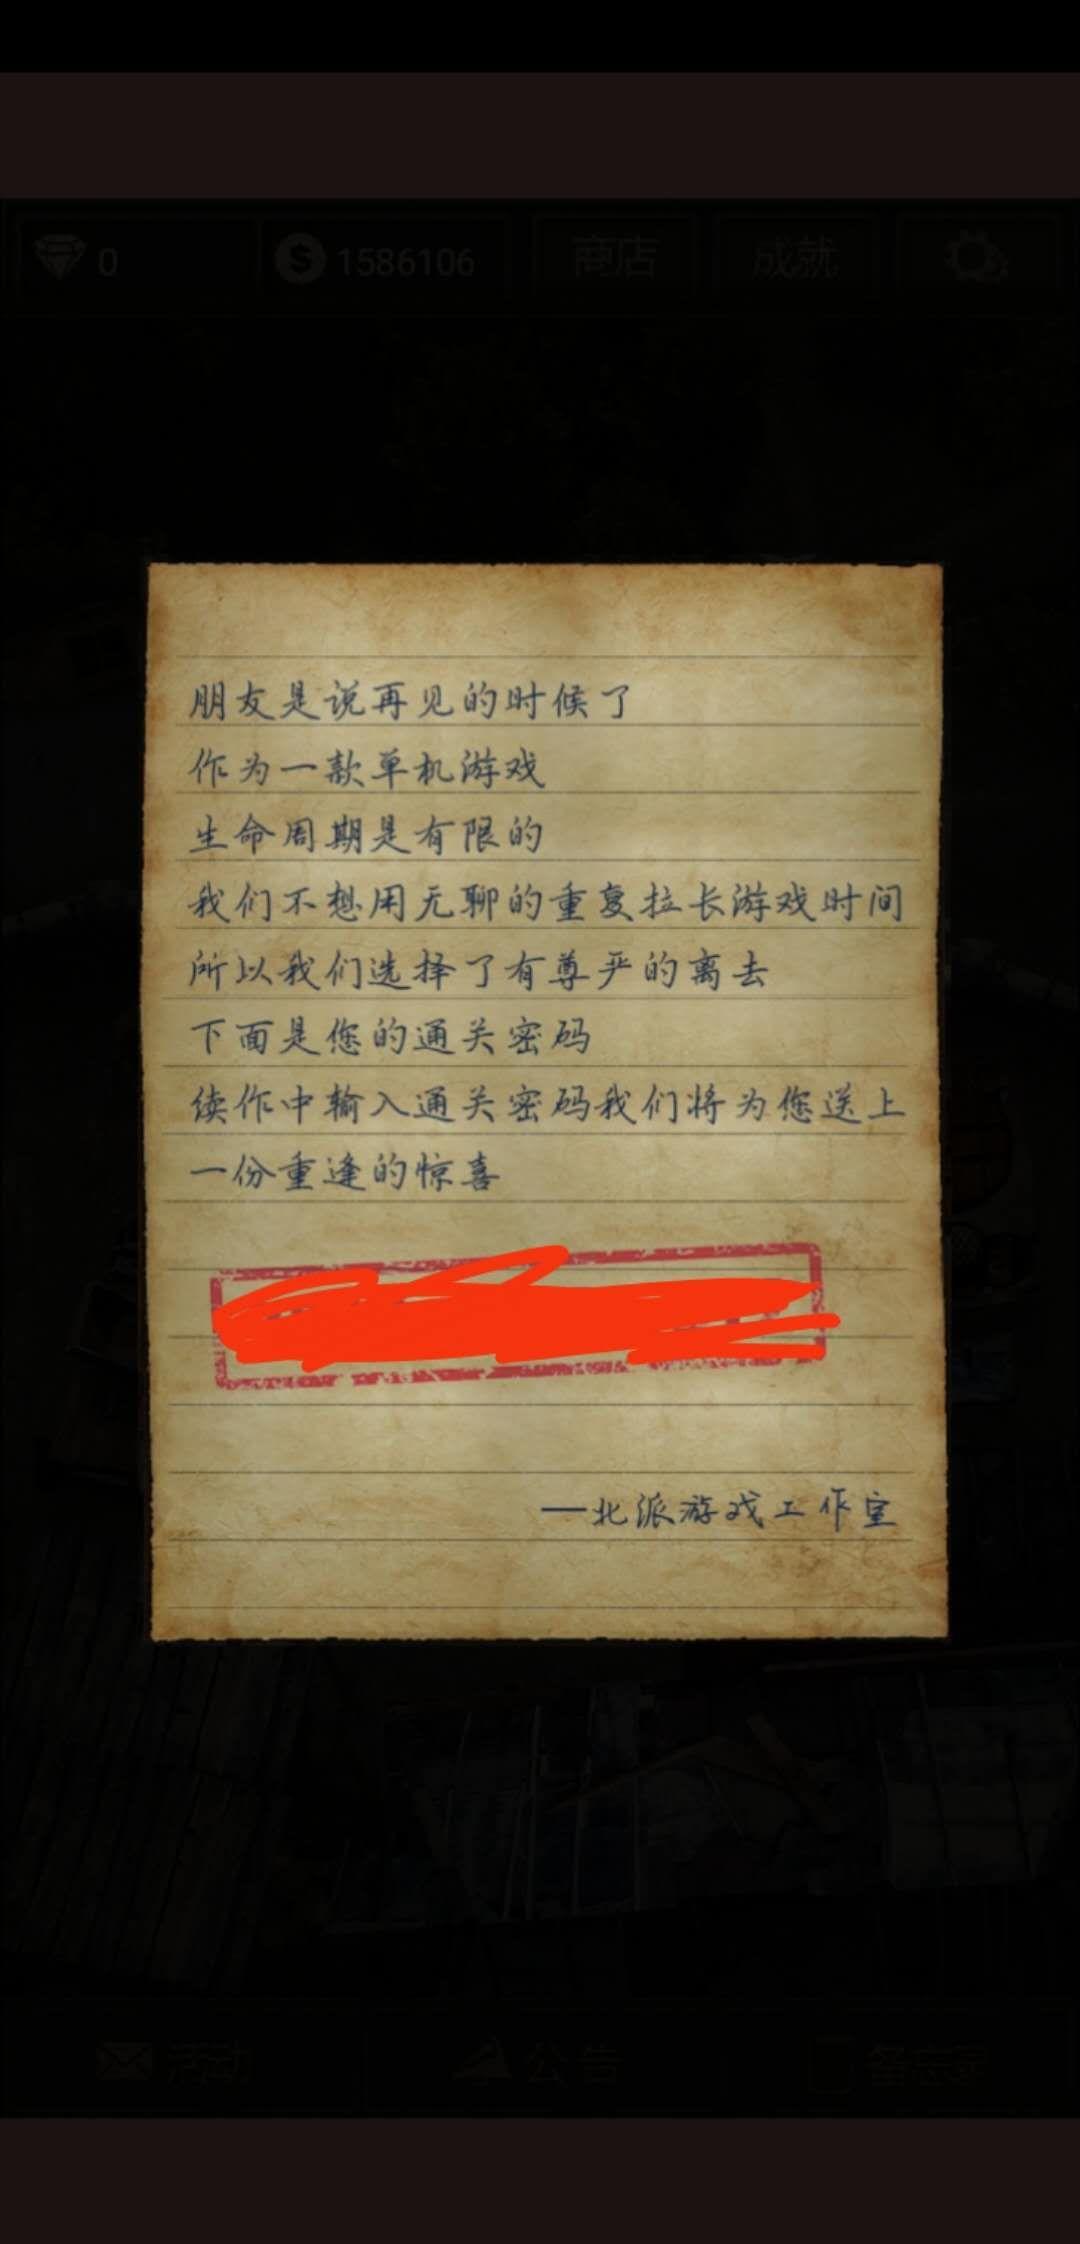 0
1586106
商店
成就
朋友是说再见的时候了
作为一款单机游戏
生命周期是有限的
我们不想用无聊的重复拉长游戏时间
所以我们选择了有尊严的离去
下面是您的通关密码
续作中输入通关密码我们将为您送上
一份重逢的惊喜
—北派游戏工作室
活动
公告
备忘录